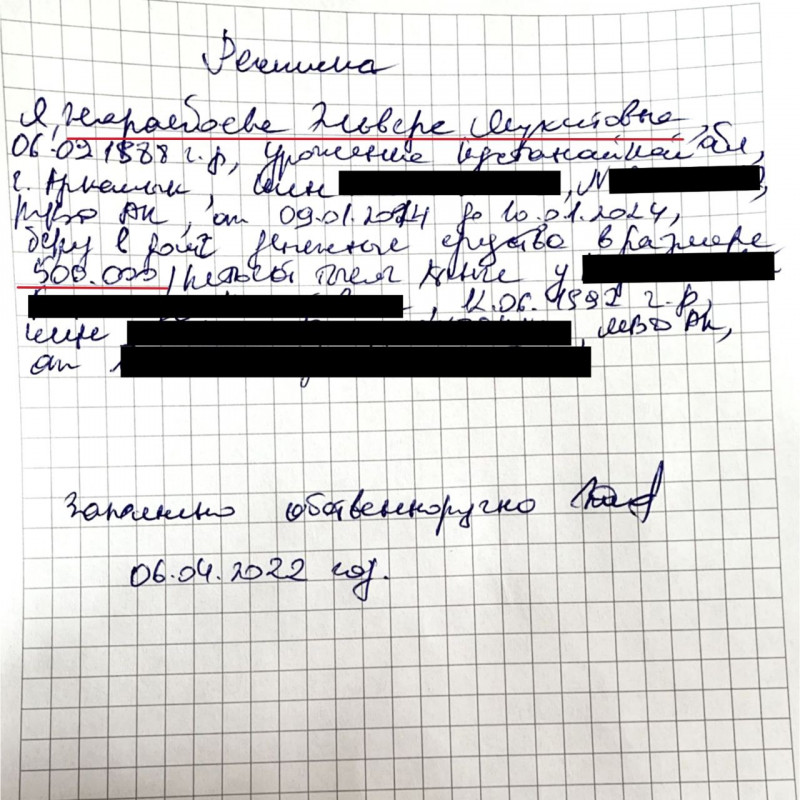 Расписка
Я, Эльвера Мукитовна,
06.09 1988 г.р, уроженка Кустанайской обл,
г. Аркалык, иин , №
МВД РК, от 09.01.2014 до 10.01.2024,
беру в долг денежные средства в размере
500.000 тысяч тенге у
12.06.1992 г.р,
иин , МВД РК,
от
Заполнено собственноручно
06.04.2022 год.